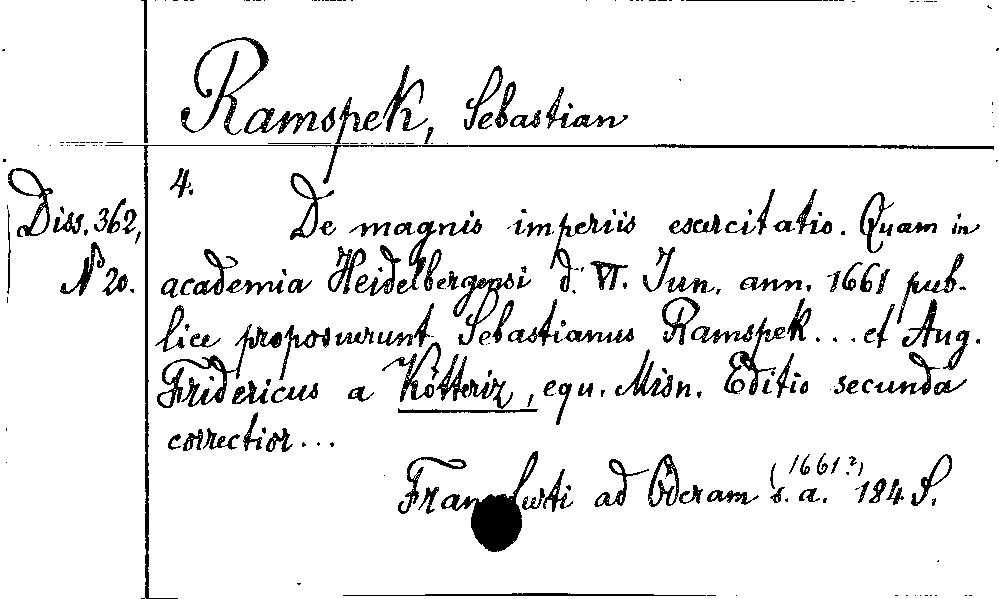 Ramspek, Sebastian
4.
Diss. 362,
No 20.
De magnis imperiis exercitatio. Quam in
academia Heidelbergensi d. VI. Jun. ann. 1661 pub-
lice proposuerunt Sebastianus Ramspek... et Aug.
Fridericus a Kötteriz, equ. Misn. Editio secunda
correctior...
(1661?)
Francofurti ad Oderam s. a. 184 S.